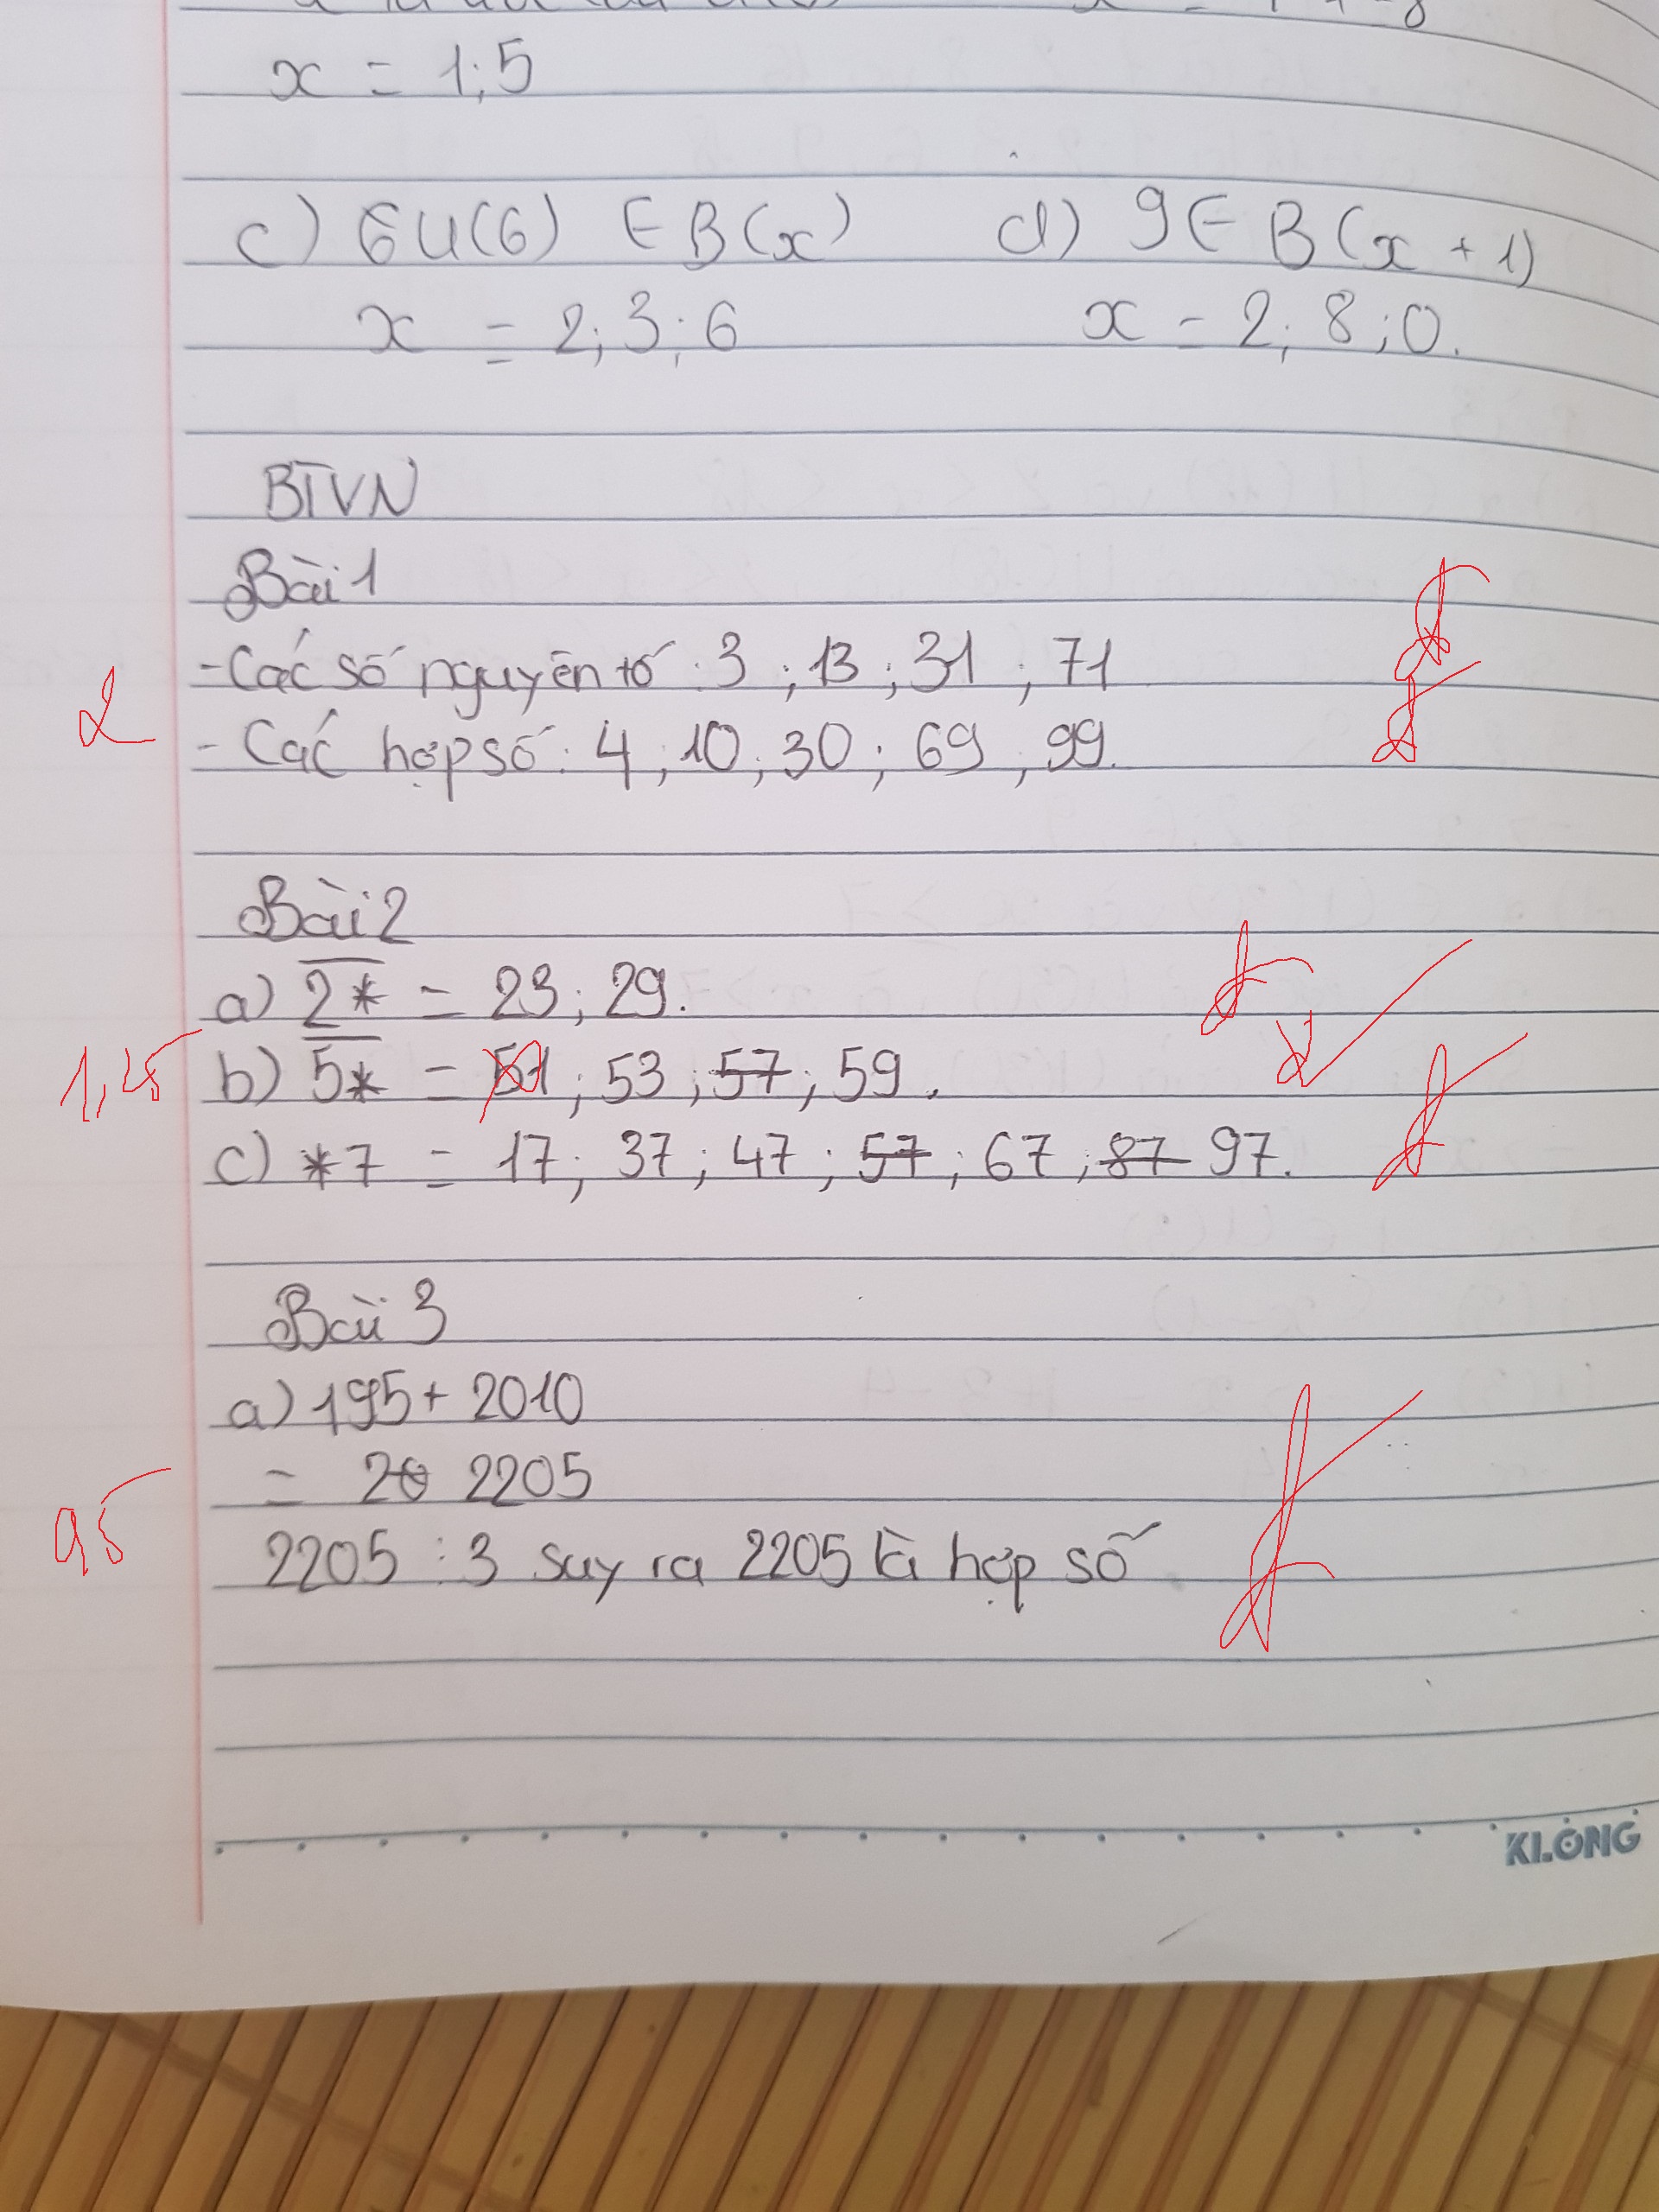 x = 1;5
c) 6 Ư(6) ∈ B(x) d) 9 ∈ B(x + 1)
x = 2; 3; 6 x = 2; 8; 0.
BTVN
Bài 1
- Các số nguyên tố: 3; 13; 31; 71
2
- Các hợp số: 4; 10; 30; 69, 99.
Bài 2
a) 2* = 23; 29.
1,25
b) 5* = 51; 53; 57; 59.
c) *7 = 17; 37; 47; 57; 67; 87 97.
Bài 3
a) 195 + 2010
= 20 2205
95
2205 : 3 suy ra 2205 là hợp số.
KLONG